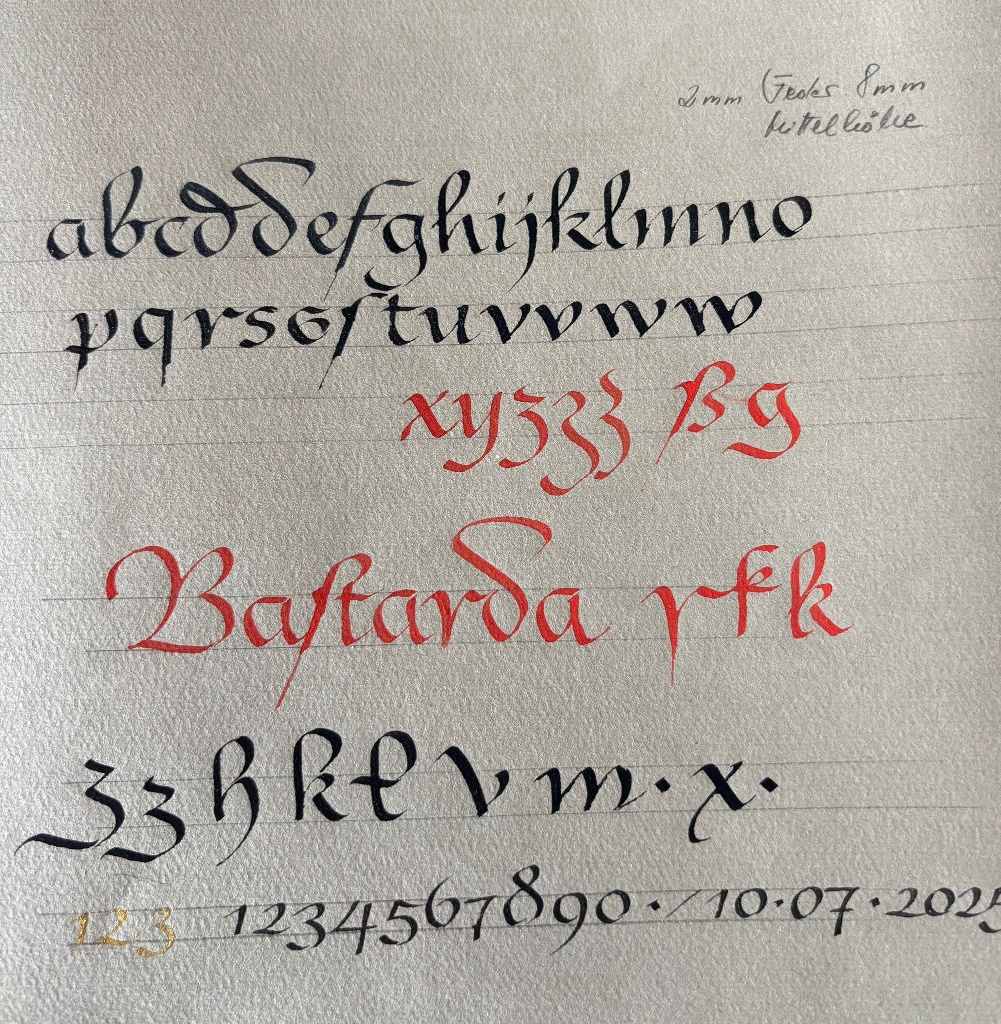 2 mm Feder 8 mm
Mittelhöhe
abcddefghijklmnno
pqrssſtuvvwww
xyzzz ßg
Baſtarda rkk
zz h k l v m · x ·
123 1234567890 · / 10 · 07 · 2025